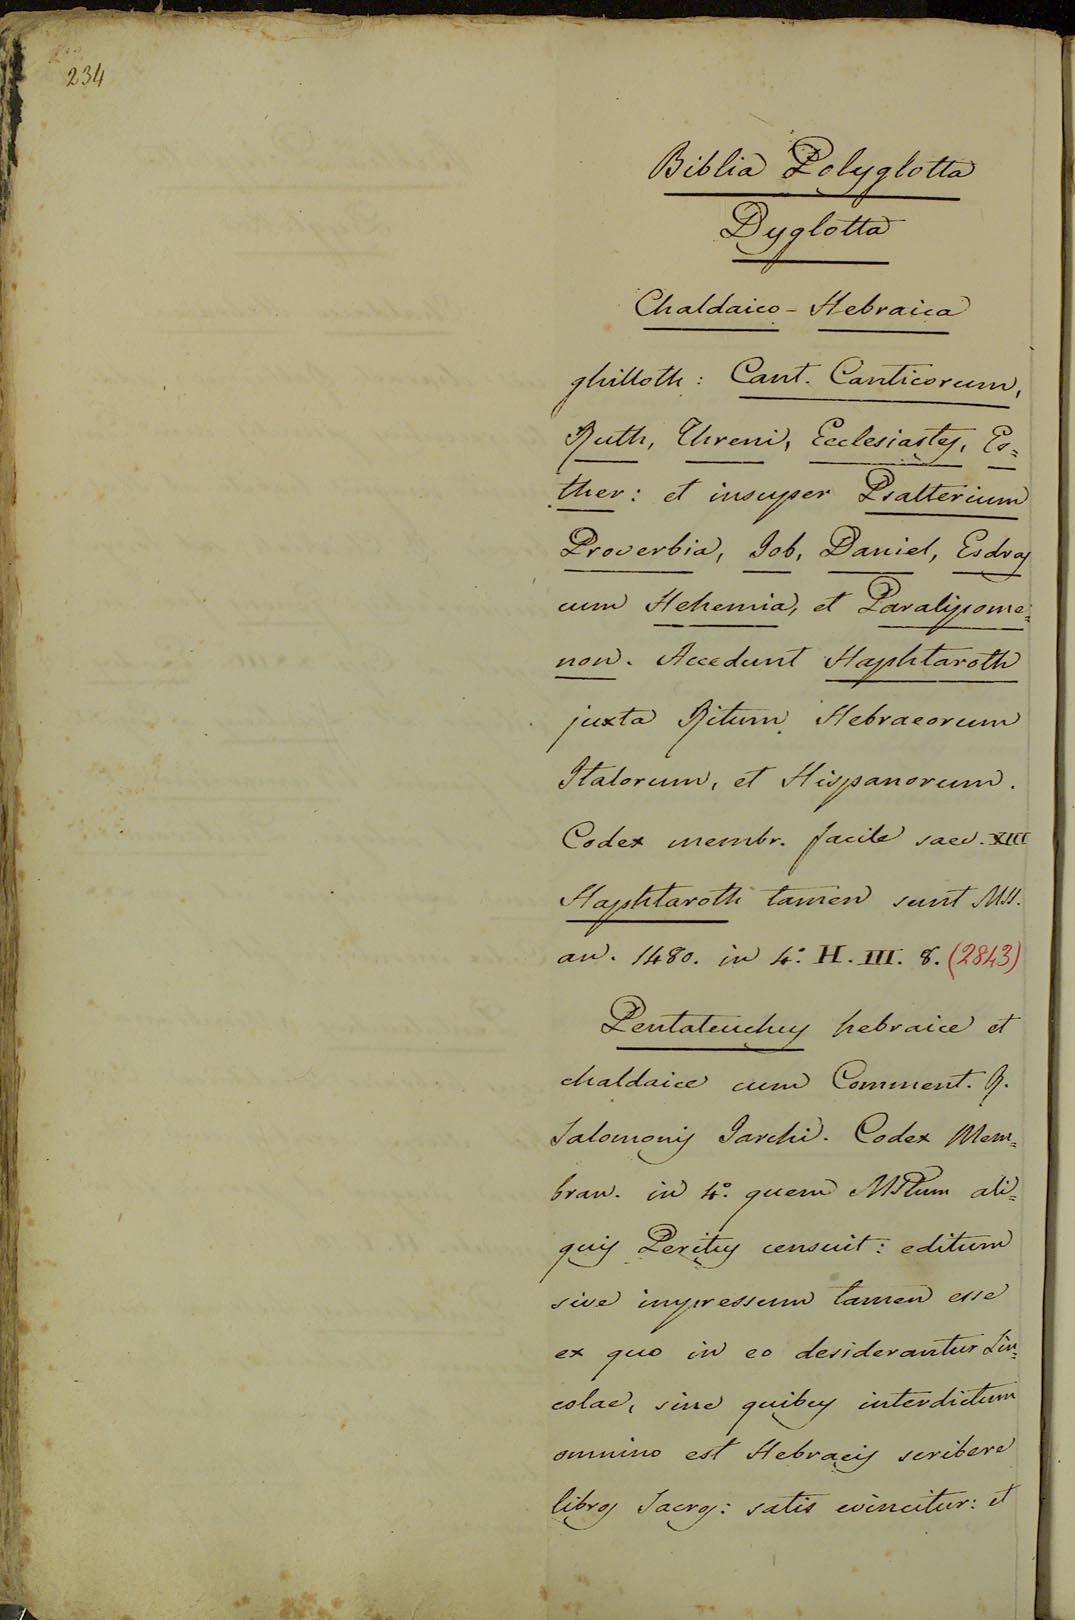 234
Biblia Polyglotta
Dyglotta
Chaldaico - Hebraica
ghilloth: Cant. Canticorum,
Ruth, Threni, Ecclesiastes, Es=
ther: et insuper Psalterium
Proverbia, Job, Daniel, Esdras
cum Nehemia, et Paralipome=
non. Accedunt Haphtaroth
juxta Ritum Hebraeorum
Italorum, et Hispanorum.
Codex membr. facile saec. XIII
Haphtaroth tamen sunt MSS.
an. 1480. in 4.° H. III. 8. (2843)
Pentateuchus hebraice et
chaldaice cum Comment. R.
Salomonis Jarchi. Codex Mem=
bran. in 4.° quem MStum ali=
quis Peritus censuit: editum
sive impressum tamen esse
ex quo in eo desiderantur Lin=
eolae, sine quibus interdictum
omnino est Hebraeis scribere
libros Sacros: satis evincitur: et